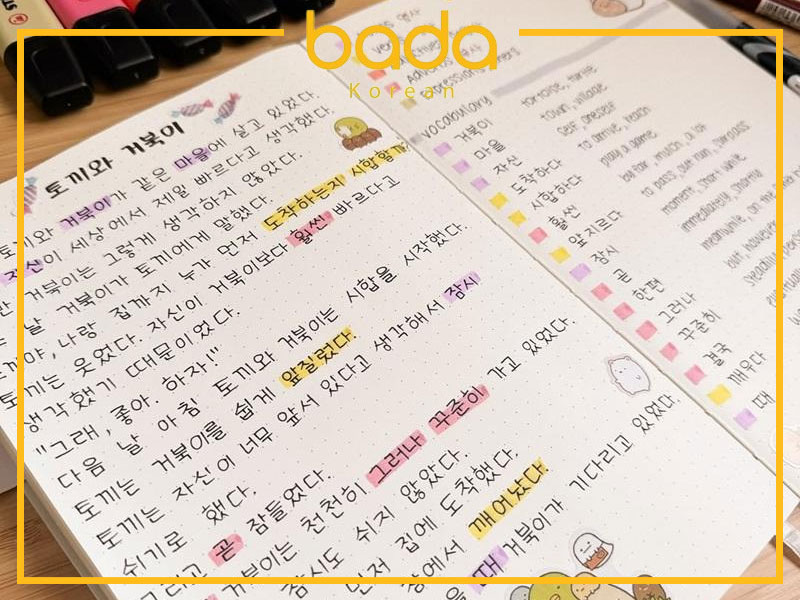 bada
Korean
토끼와 거북이
토끼와 거북이가 같은 마을에 살고 있었다.
자신이 세상에서 제일 빠르다고 생각했다.
거북이는 그렇게 생각하지 않았다.
날 거북이가 토끼에게 말했다.
나랑 집까지 누가 먼저 도착하는지 시합할까
토끼는 웃었다. 자신이 거북이보다 훨씬 빠르다고
생각했기 때문이었다.
"그래, 좋아. 하자!"
다음 날 아침 토끼와 거북이는 시합을 시작했다.
토끼는 거북이를 쉽게 앞질렀다.
토끼는 자신이 너무 앞서 있다고 생각해서 잠시
쉬기로 했다.
그리고 곧 잠들었다.
거북이는 천천히 그러나 꾸준히 가고 있었다.
잠시도 쉬지 않았다.
먼저 집에 도착했다.
깨어났다.
때 거북이가 기다리고 있었다.
vocabulary
거북이 tortoise, turtle
마을 town, village
자신 self, oneself
도착하다 to arrive, reach
시합하다 play a game
훨씬
앞지르다
잠시 moment, short while
곧 immediately, shortly
한편
그러나
꾸준히
결국
깨우다
때